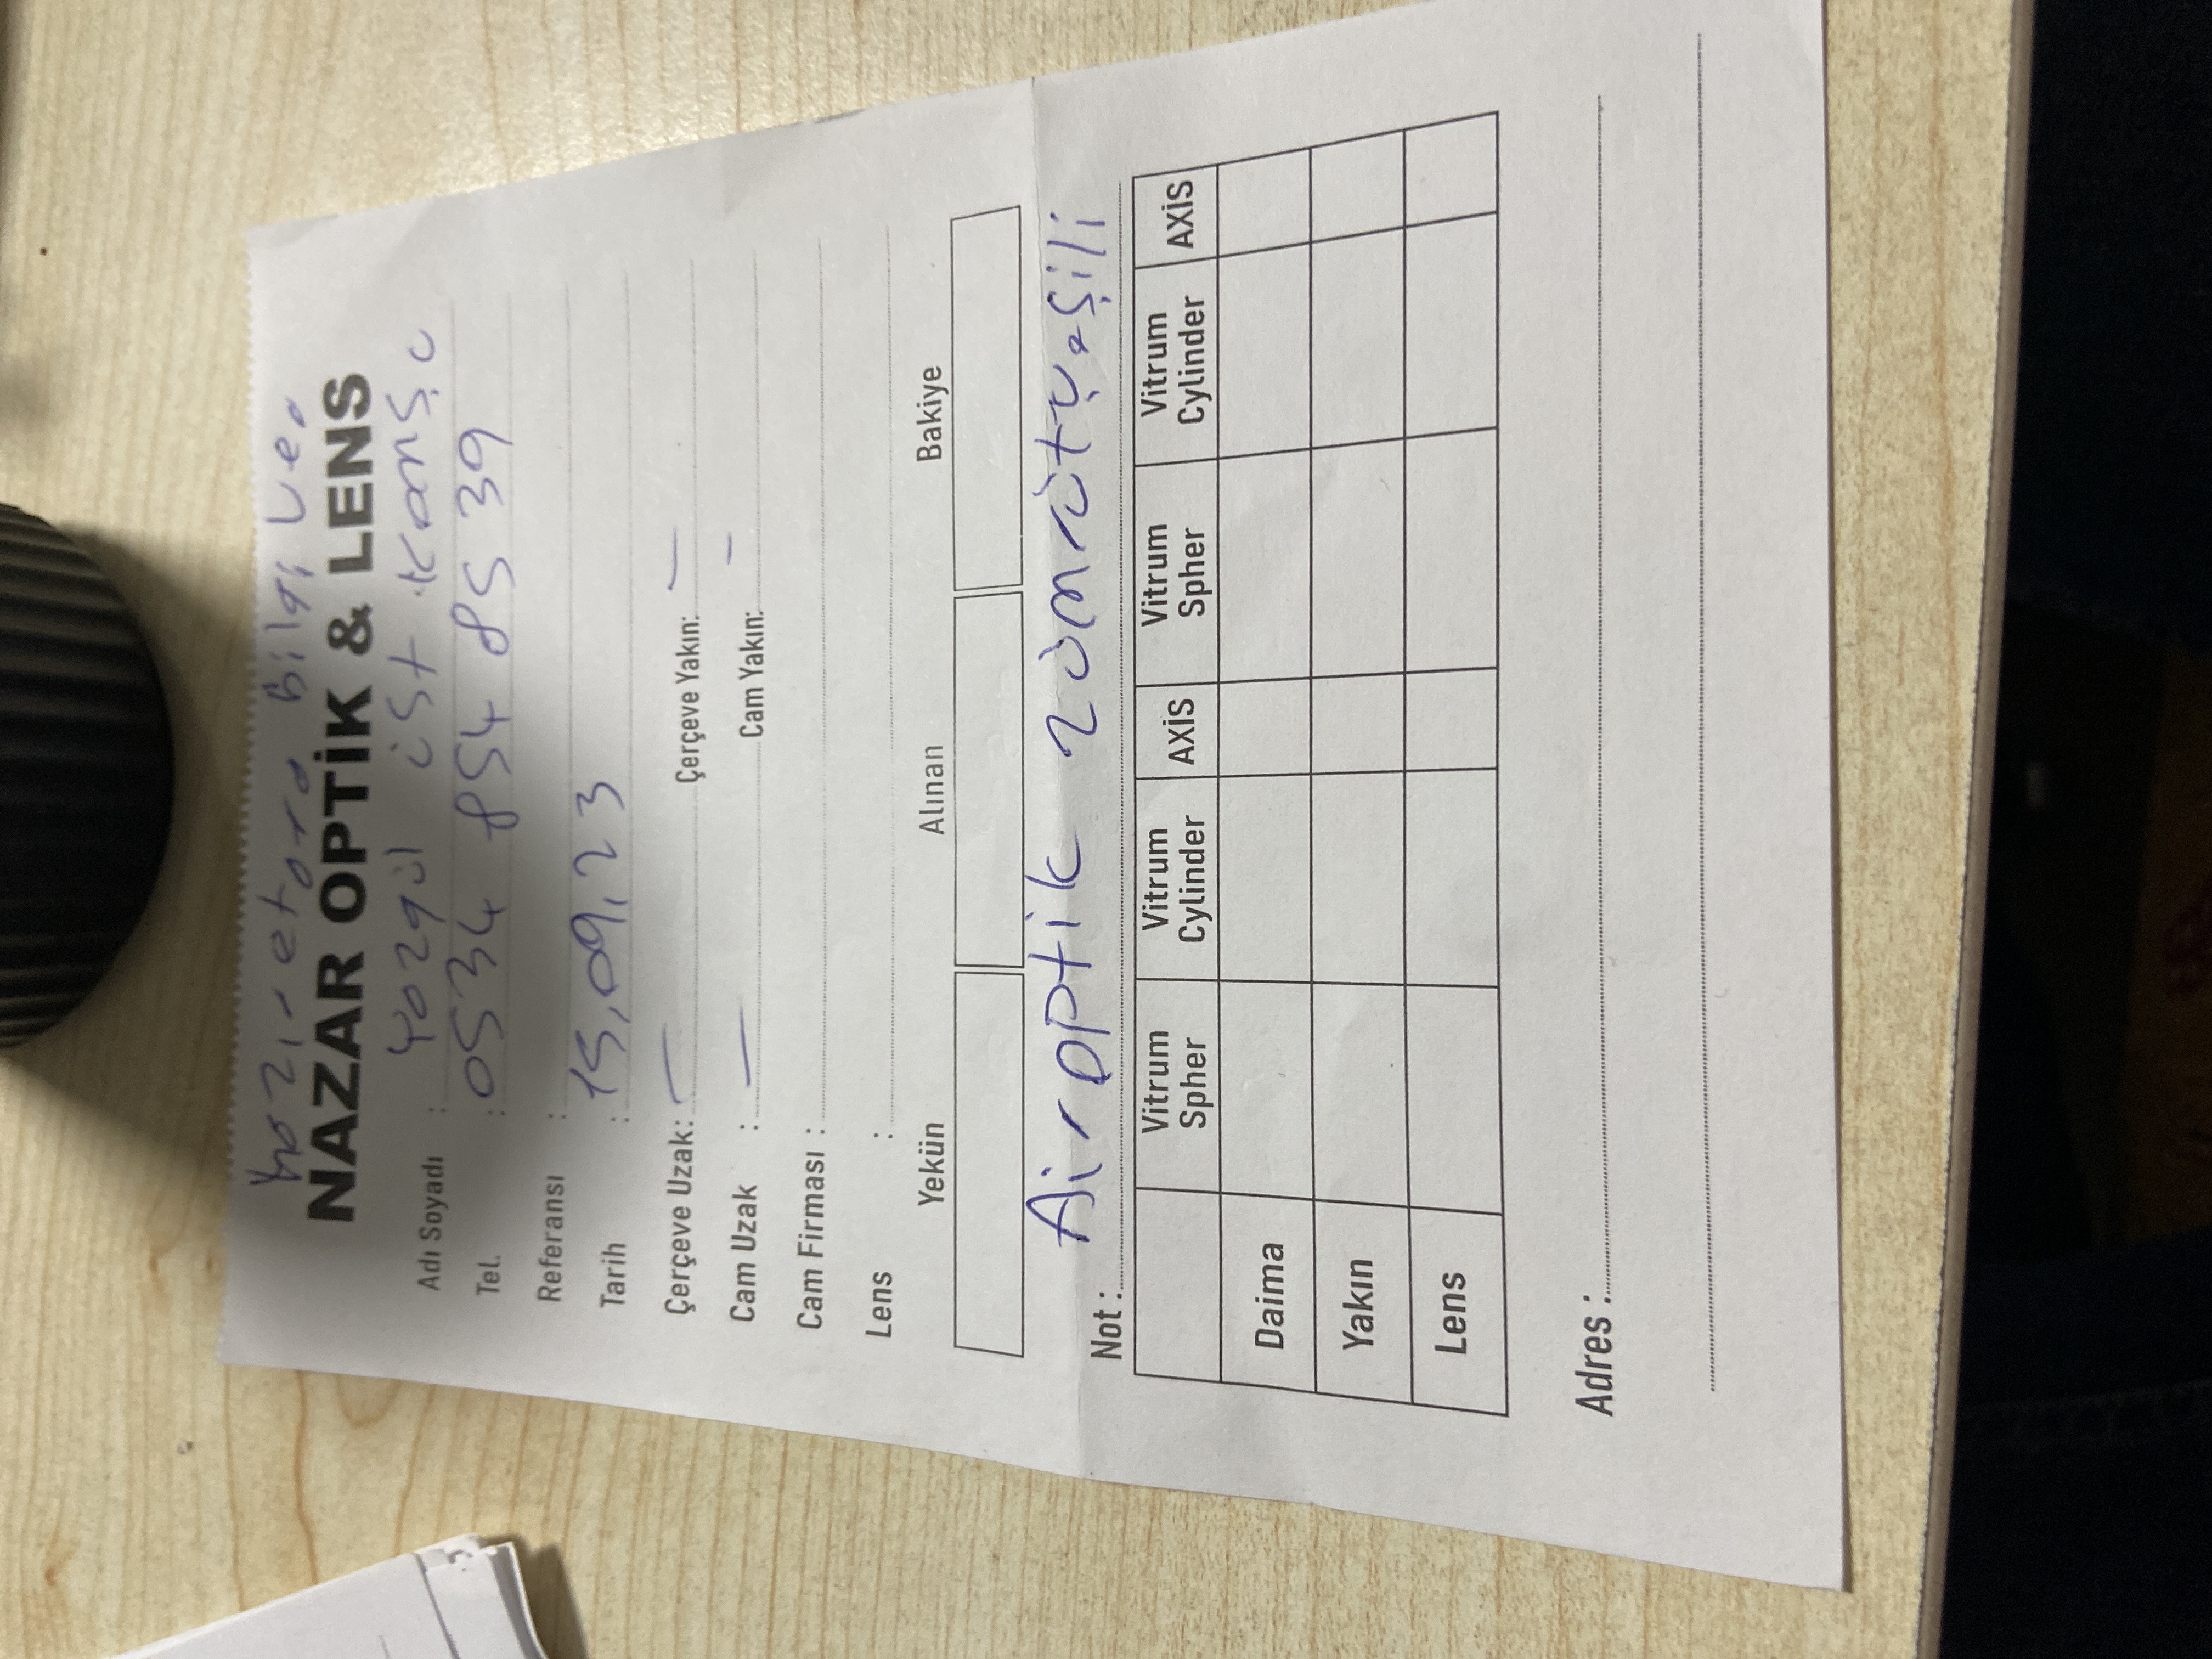 Bilgi Ver
NAZAR OPTİK & LENS
Adı Soyadı : Yozgül ist
Tel. : 0534 854 85 39
Referansı :
Tarih : 15,09,23
Çerçeve Uzak: — Çerçeve Yakın: —
Cam Uzak : — Cam Yakın: —
Cam Firması :
Lens :
Yekün Alınan Bakiye
Not : Airoptik zümrüt yeşili
Vitrum Spher Vitrum Cylinder AXİS Vitrum Spher Vitrum Cylinder AXİS
Daima
Yakın
Lens
Adres :